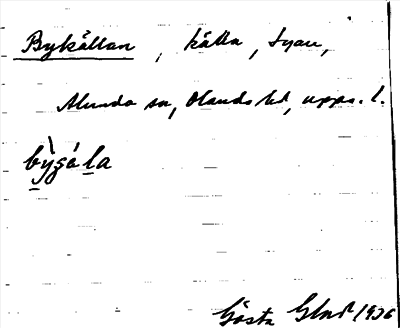 Bykällan, källa, Lyan,
Alunda sn, Olands hd, Upps. l.
bỳgá la
Gösta 1936